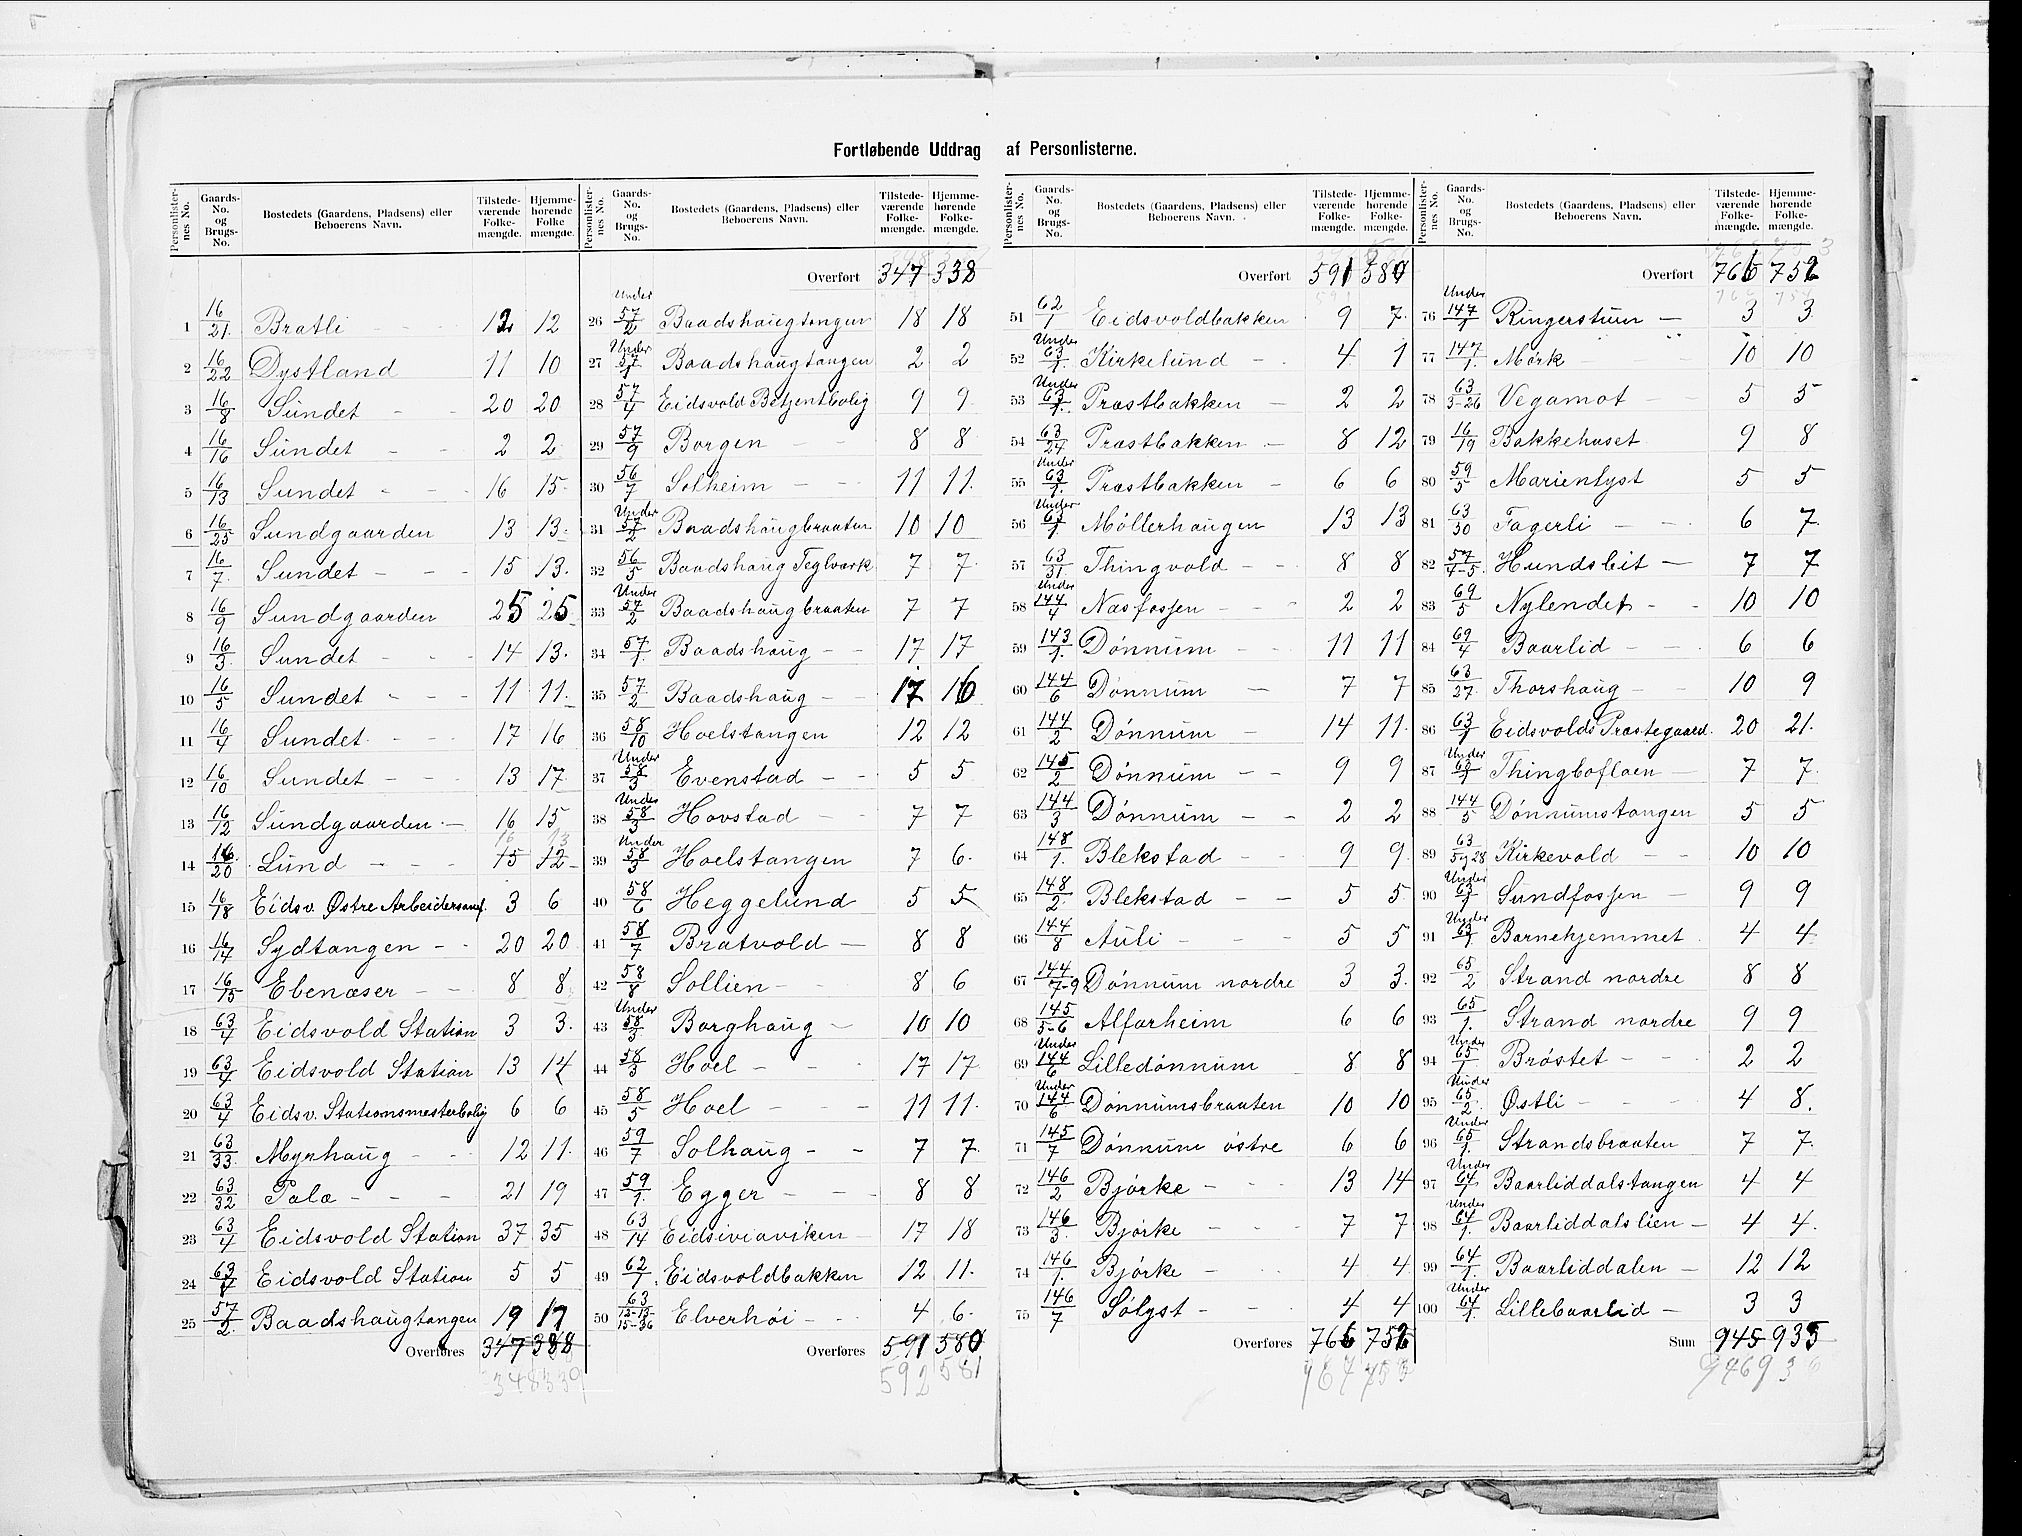 Fortløbende Uddrag af Personlisterne.
Personlister-nes No. Gaards-No. og Brugs-No. Bostedets (Gaardens, Pladsens) eller Beboerens Navn. Tilstede-værende Folke-mængde. Hjemme-hørende Folke-mængde.
1 16/21 Bratli 12 12
2 16/22 Dystland 11 10
3 16/8 Sundet 20 20
4 16/16 Sundet 2 2
5 16/13 Sundet 16 15
6 16/25 Sundgaarden 13 13
7 16/7 Sundet 15 13
8 16/9 Sundgaarden 25 25
9 16/3 Sundet 14 13
10 16/5 Sundet 11 11
11 16/4 Sundet 17 16
12 16/10 Sundet 13 17
13 16/12 Sundgaarden 16 15
14 16/20 Lund 15 12
15 16/18 Eidsv. Østre Arbeidersamf. 3 6
16 16/14 Sydtangen 20 20
17 16/15 Ebenæser 8 8
18 63/4 Eidsvold Station 3 3
19 63/4 Eidsvold Station 13 14
20 63/4 Eidsv. Stationsmesterbolig 6 6
21 63/33 Myrhaug 12 11
22 63/32 Palæ 21 19
23 63/4 Eidsvold Station 37 35
24 63/4 Eidsvold Station 5 5
25 57/2 Baadshaugtangen 19 17
Overføres 347 338
348 339
Personlister-nes No. Gaards-No. og Brugs-No. Bostedets (Gaardens, Pladsens) eller Beboerens Navn. Tilstede-værende Folke-mængde. Hjemme-hørende Folke-mængde.
Overført 347 338
26 Under 57/2 Baadshaugtangen 18 18
27 Under 57/1 Baadshaugtangen 2 2
28 57/4 Eidsvold Betjentbolig 9 9
29 57/9 Borgen 8 8
30 56/7 Solheim 11 11
31 Under 57/2 Baadshaugbraaten 10 10
32 56/5 Baadshaug Teglværk 7 7
33 Under 57/2 Baadshaugbraaten 7 7
34 57/1 Baadshaug 17 17
35 57/2 Baadshaug 17 16
36 58/10 Hoelstangen 12 12
37 Under 58/3 Evenstad 5 5
38 Under 58/3 Hovstad 7 7
39 Under 58/3 Hoelstangen 7 6
40 58/6 Heggelund 5 5
41 58/7 Bratvold 8 8
42 58/8 Sollien 8 6
43 Under 58/3 Borghaug 10 10
44 58/3 Hoel 17 17
45 58/5 Hoel 11 11
46 59/7 Solhaug 7 7
47 59/1 Egger 8 8
48 63/14 Eidsiviaviken 17 18
49 62/1 Eidsvoldbakken 12 11
50 63/12-13-15-36 Elverhøi 4 6
Overføres 591 580
592 581
Personlister-nes No. Gaards-No. og Brugs-No. Bostedets (Gaardens, Pladsens) eller Beboerens Navn. Tilstede-værende Folke-mængde. Hjemme-hørende Folke-mængde.
Overført 591 580
51 62/1 Eidsvoldbakken 9 7
52 Under 63/1 Kirkelund 4 1
53 Under 63/1 Præstbakken 2 2
54 63/24 Præstbakken 8 12
55 Under 63/1 Præstbakken 6 6
56 Under 63/1 Møllerhaugen 13 13
57 63/31 Thingvold 8 8
58 Under 144/4 Næsfossen 2 2
59 143/1 Dønnum 11 11
60 144/6 Dønnum 7 7
61 144/2 Dønnum 14 11
62 145/2 Dønnum 9 9
63 144/3 Dønnum 2 2
64 148/1 Blekstad 9 9
65 148/2 Blekstad 5 5
66 144/8 Auli 5 5
67 144/7-9 Dønnum nordre 3 3
68 145/5-6 Alfarheim 6 6
69 Under 144/6 Lilledønnum 8 8
70 Under 144/6 Dønnumsbraaten 10 10
71 145/7 Dønnum østre 6 6
72 146/2 Bjørke 13 14
73 146/3 Bjørke 7 7
74 146/1 Bjørke 4 4
75 146/7 Sølyst 4 4
Overføres 766 752
767 753
Personlister-nes No. Gaards-No. og Brugs-No. Bostedets (Gaardens, Pladsens) eller Beboerens Navn. Tilstede-værende Folke-mængde. Hjemme-hørende Folke-mængde.
Overført 766 752
76 Under 147/1 Ringerstuen 3 3
77 147/1 Mørk 10 10
78 63/3-26 Vegamot 5 5
79 16/19 Bakkehuset 9 8
80 59/5 Marienlyst 5 5
81 63/30 Fagerli 6 7
82 57/4-5 Hundsbit 7 7
83 69/5 Nylendet 10 10
84 69/4 Baarlid 6 6
85 63/27 Thorshaug 10 9
86 63/1 Eidsvolds Præstegaard 20 21
87 Under 63/1 Thingboflaen 7 7
88 144/5 Dønnumstangen 5 5
89 63/5 og 28 Kirkevold 10 10
90 Under 63/1 Sundfossen 9 9
91 Under 63/1 Barnehjemmet 4 4
92 65/2 Strand nordre 8 8
93 65/1 Strand nordre 9 9
94 Under 65/1 Brøstet 2 2
95 Under 65/2 Østli 4 8
96 Under 65/1 Strandsbraaten 7 7
97 Under 64/1 Baarliddalstangen 4 4
98 Under 64/1 Baarliddalslien 4 4
99 64/1 Baarliddalen 12 12
100 Under 64/1 Lillebaarlid 3 3
Sum 945 935
946 936